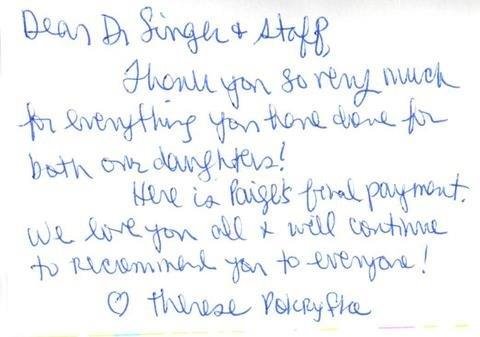 Dear Dr Singer & Staff,
Thank you so very much
for everything you have done for
both our daughters!
Here is Paige's final payment.
We love you all & will continue
to recommend you to everyone!
♡ Therese